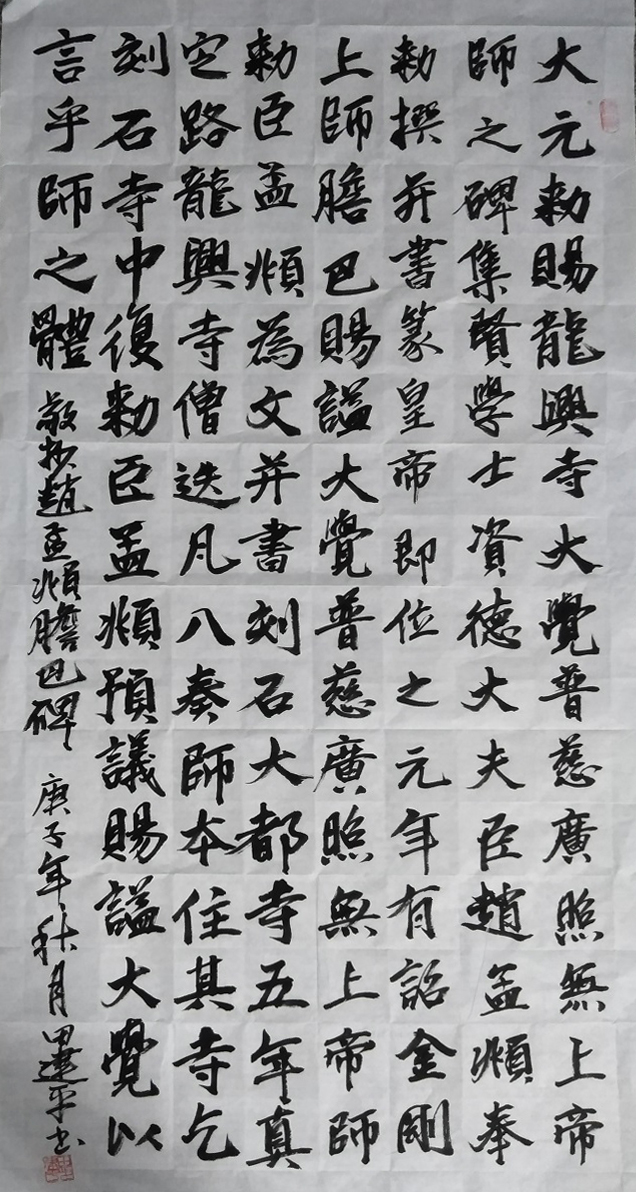 大元勅賜龍興寺大覺普慈廣照無上帝
師之碑集賢學士資德大夫臣趙孟頫奉
勅撰并書篆皇帝即位之元年有詔金剛
上師膽巴賜謚大覺普慈廣照無上帝師
勅臣孟頫為文并書刻石大都寺五年真
定路龍興寺僧迭凡八奏師本住其寺乞
刻石寺中復勅臣孟頫預議賜謚大覺以
言乎師之體 敬抄趙孟頫膽巴碑 庚子年秋月 田建平书